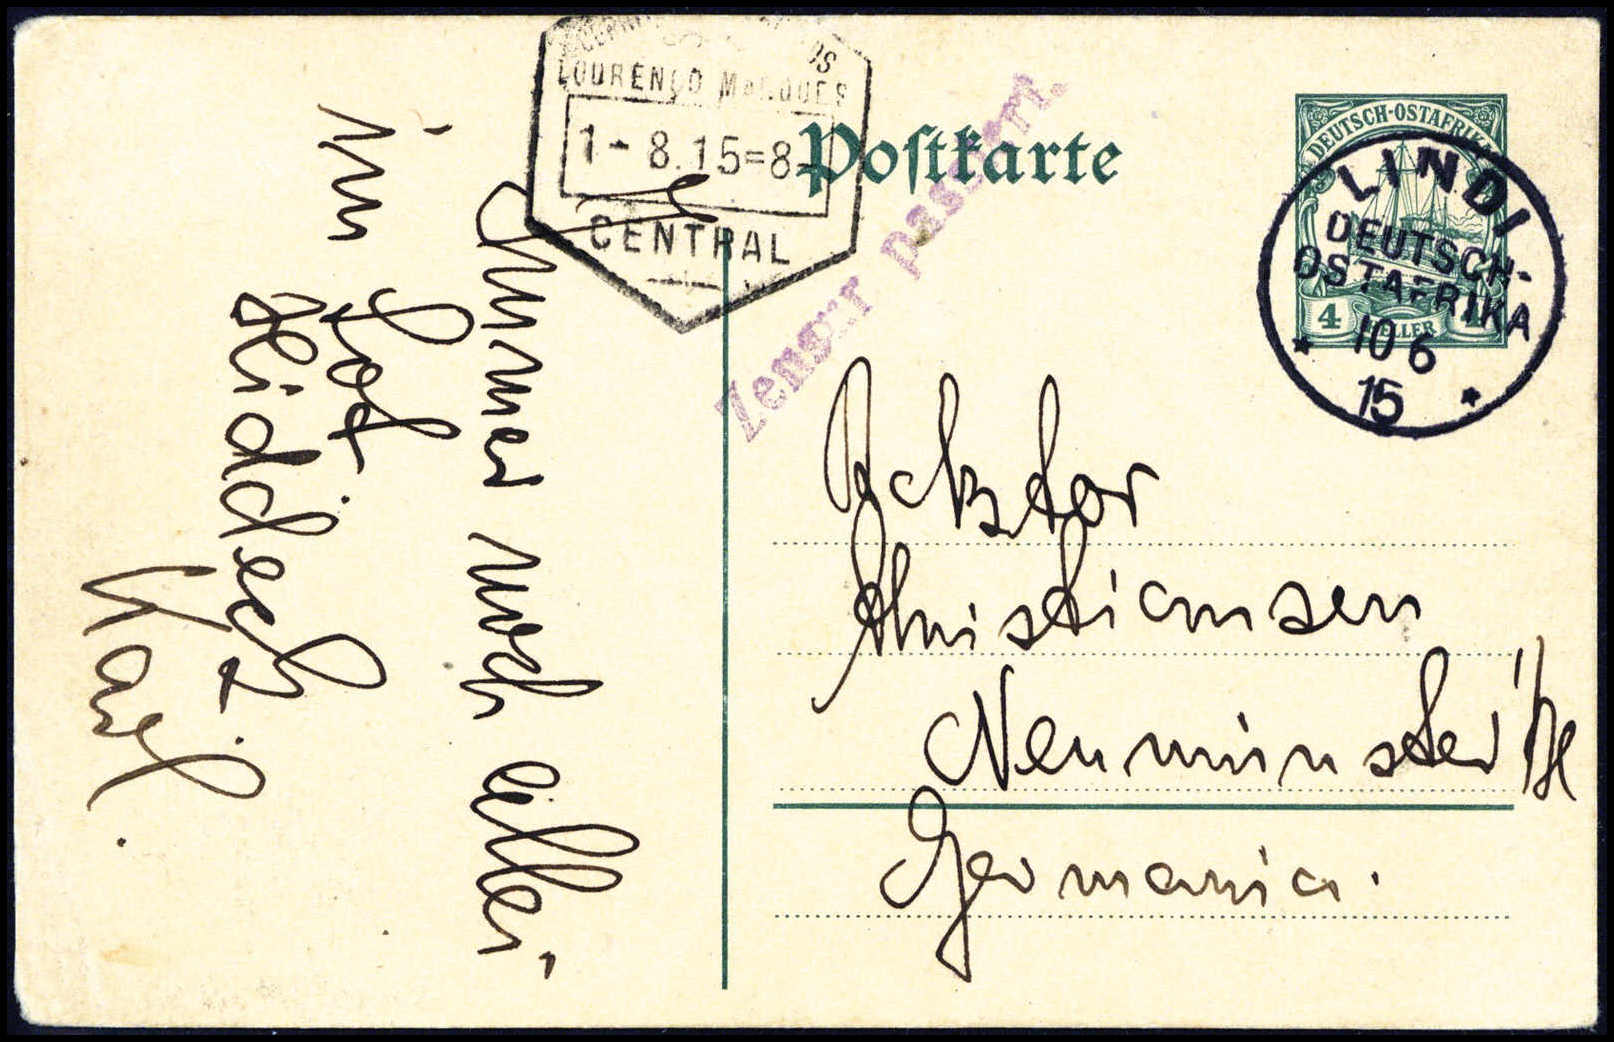 LOURENÇO MARQUES
1-8.15=8
CENTRAL
Postkarte
Zensur passiert.
DEUTSCH-OSTAFRIKA
4 HELLER 4
LINDI
DEUTSCH-
OSTAFRIKA
10 6
15
Rektor
Christiansen
Neumünster
Germania.
Immer noch
im Lot
Karl.